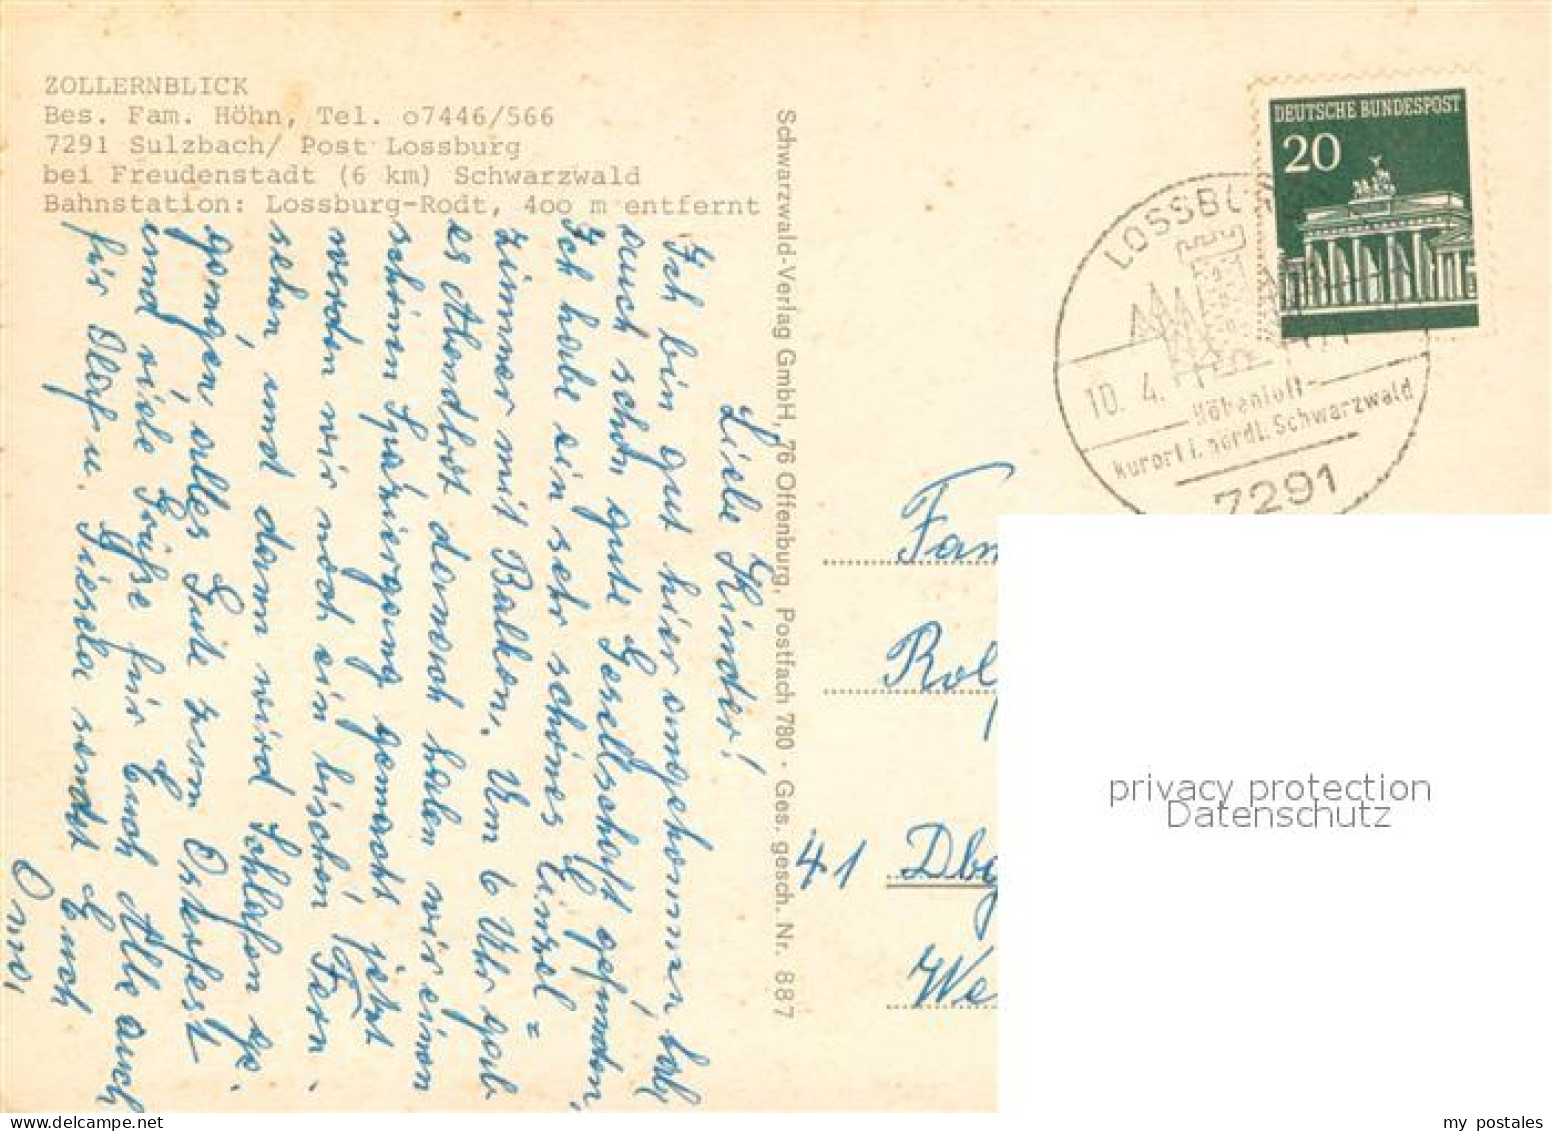 ZOLLERNBLICK
Bes. Fam. Höhn, Tel. o7446/566
7291 Sulzbach/ Post Lossburg
bei Freudenstadt (6 km) Schwarzwald
Bahnstation: Lossburg-Rodt, 4oo m entfernt
Liebe Kinder!
Ich bin gut hier angekommen, hab
auch schon gute Gesellschaft gefunden,
Ich habe ein sehr schönes Einzel=
zimmer mit Balkon. Um 6 Uhr gab
es Abendbrot danach haben wir einen
schönen Spaziergang gemacht jetzt
werden wir noch ein bischen Fern-
sehen, und dann wird schlafen ge-
gangen, alles Gute zum Osterfest
und viele Grüße für Euch Alle auch
für Olaf u. Gieska sendet Euch
Omi,
Schwarzwald-Verlag GmbH, 76 Offenburg, Postfach 780 · Ges. gesch. Nr. 887
DEUTSCHE BUNDESPOST
20
LOSSBUR
10. 4.
Höhenluft-
kurort i. nördl. Schwarzwald
7291
Fam
Rol
41 Dbg
We
privacy protection
Datenschutz
my postales